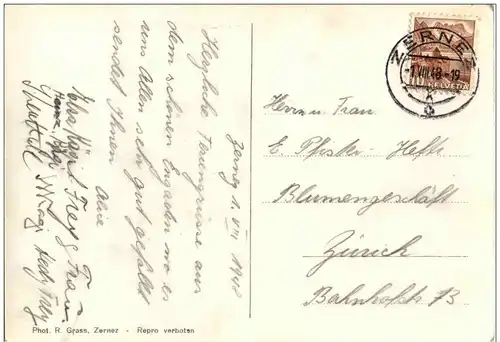 Zernez 1. VIII 1948
Herzliche Feriengrüsse aus
dem schönen Engadin wo es
uns Allen sehr gut gefällt
sendet Ihnen
Frey
Hedy Frey
ZERNEZ
-1.VIII.48-19
HELVETIA
Herrn u. Frau.
E. Pfister-Hefti
Blumengeschäft
Zürich
Bahnhofstr. 73
Phot. R. Grass, Zernez - Repro verboten